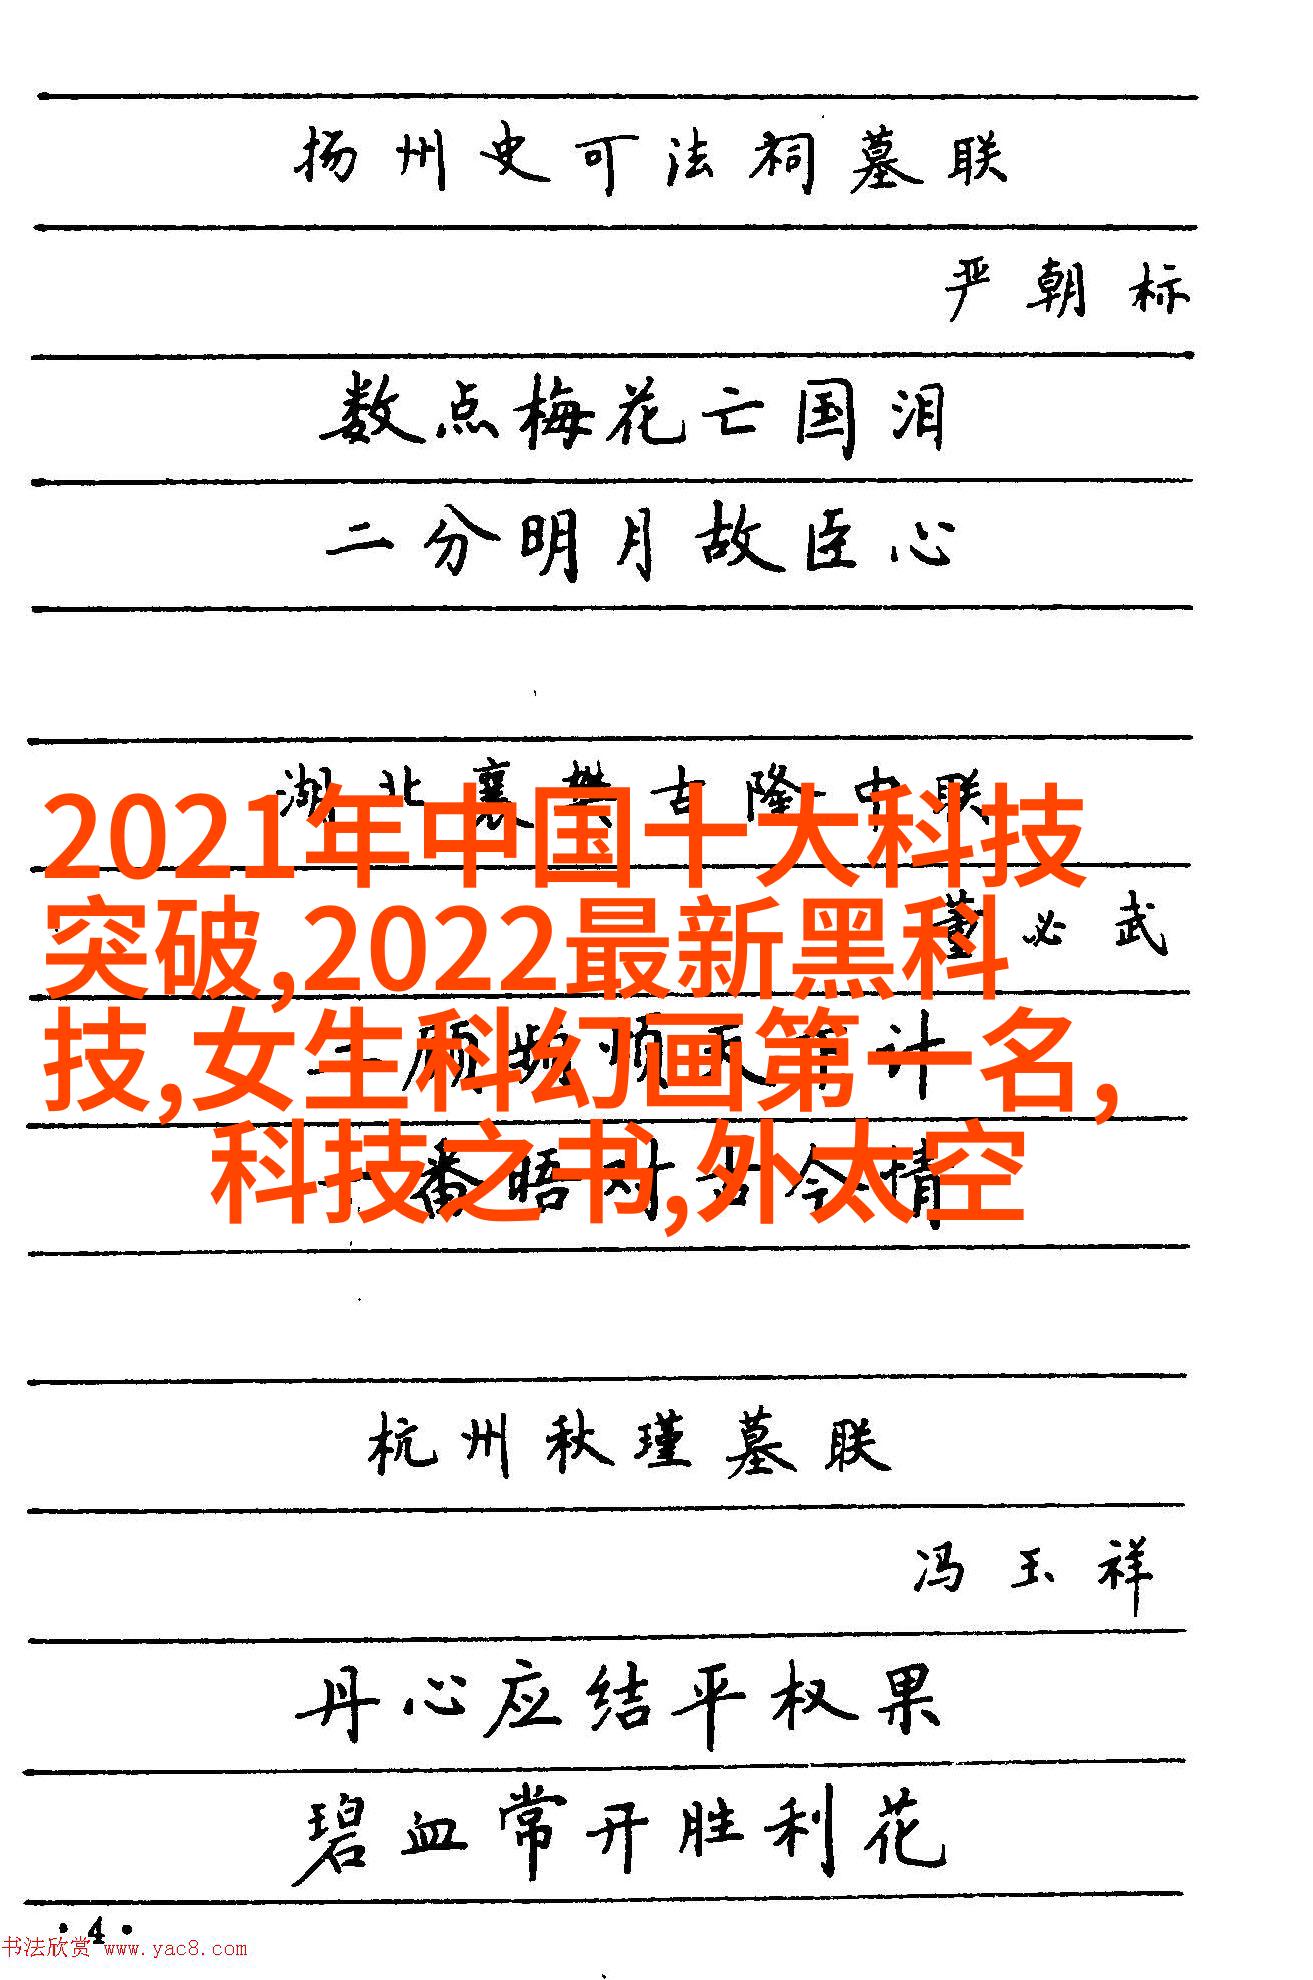 扬州史可法祠墓联
严朝标
数点梅花亡国泪
二分明月故臣心
湖北襄樊古隆中联
2021年中国十大科技
董必武
突破,2022最新黑科
三顾频烦天下计
技,女生科幻画第一名,
一番晤对古今情
科技之书,外太空
杭州秋瑾墓联
冯玉祥
丹心应结平权果
碧血常开胜利花
·4·
书法欣赏 www.yac8.com